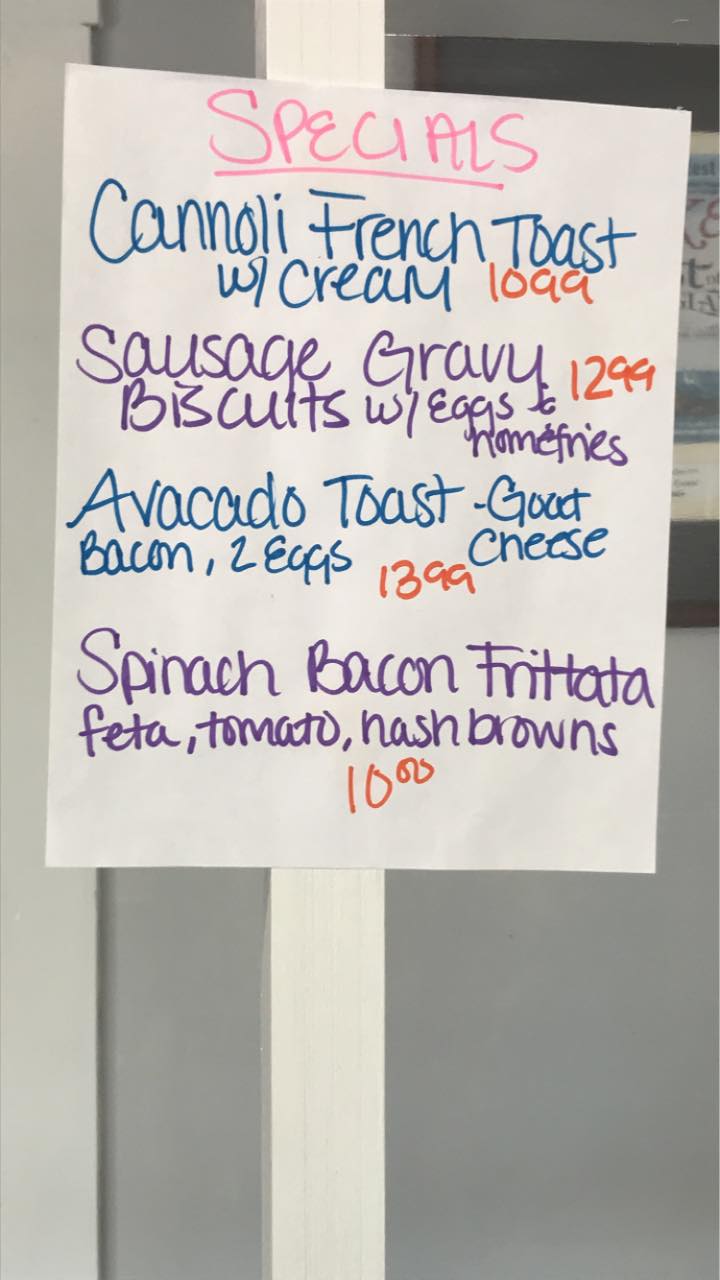 SPECIALS
Cannoli French Toast
w/ Cream 1099
Sausage Gravy 1299
BISCUITS w/ Eggs &
homefries
Avacado Toast - Goat
Bacon, 2 Eggs Cheese
1399
Spinach Bacon Frittata
feta, tomato, hash browns
10⁰⁰